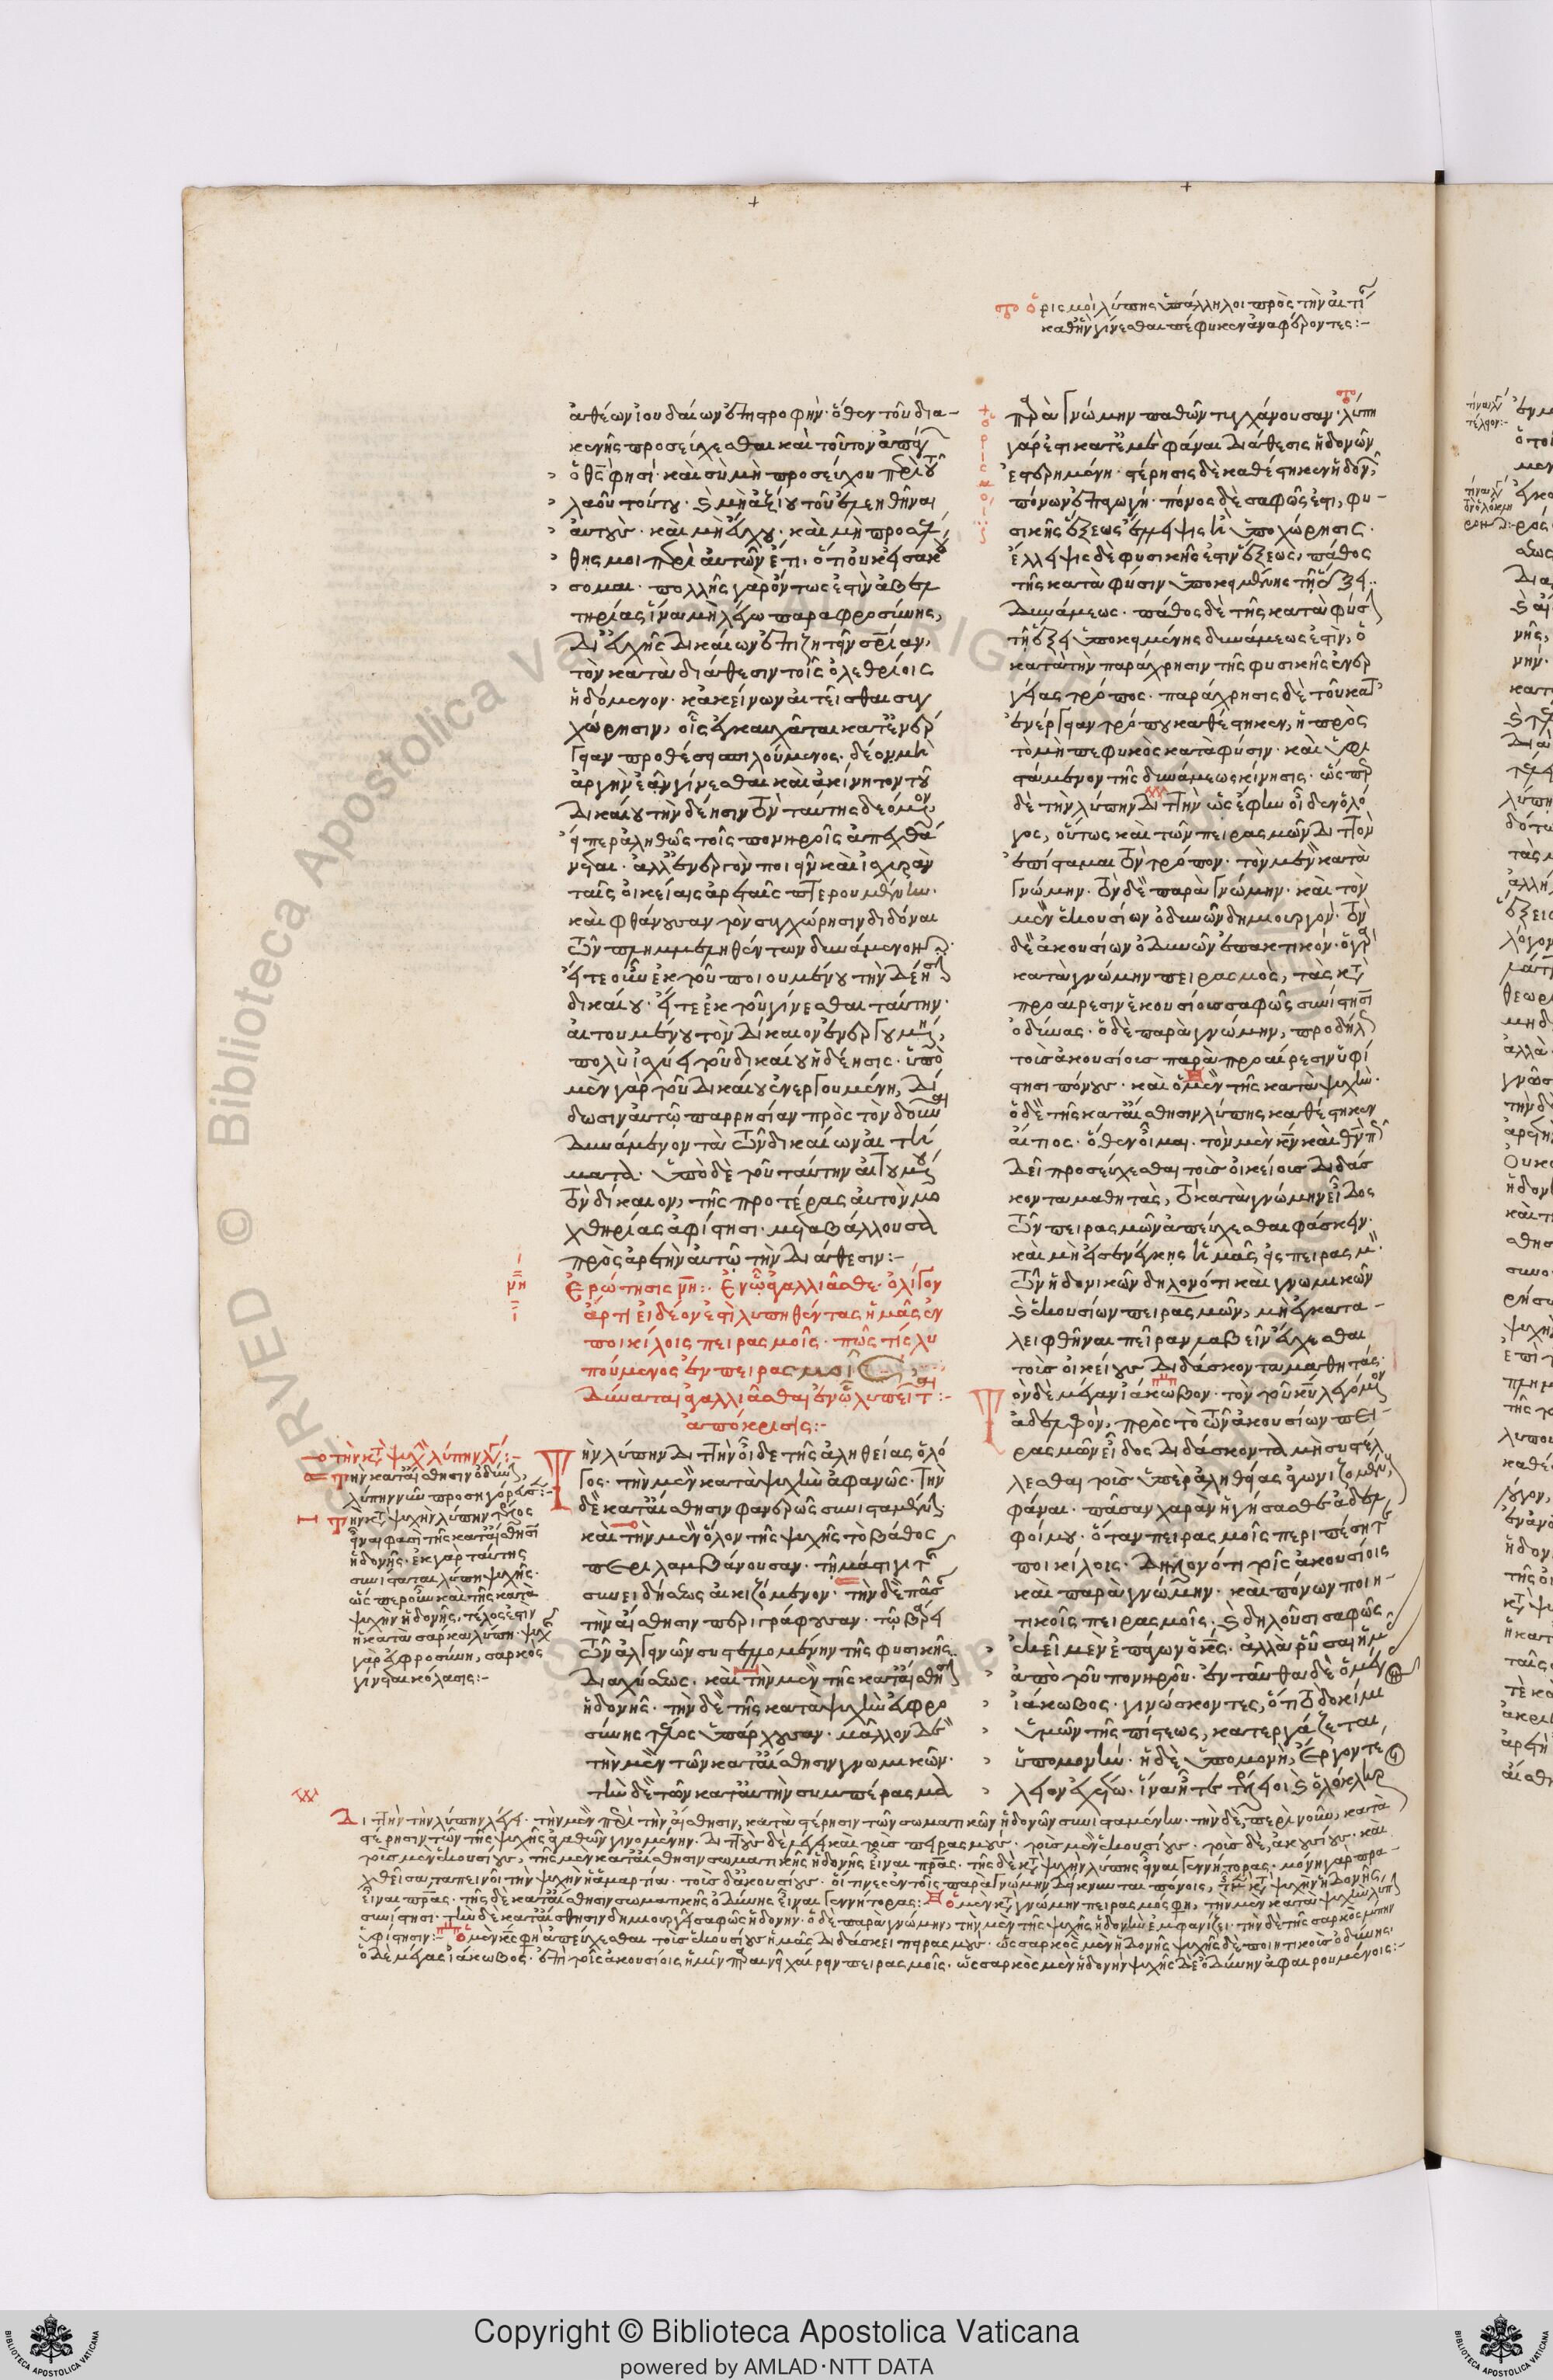 ὁρισμοὶ λύπης ὑπάλληλοι πρὸς τὴν αἰτί
καθ ἣν γίνεσθαι πέφυκεν ἀναφέροντες:-
ἀθέων ἰουδαίων ἐπιστροφήν· ὅθεν τοῦ δια-
κενῆς προσεύχεσθαι καὶ τοῦτον
ὁ θς φησί· καὶ σὺ μὴ προσεύχου περὶ τοῦ
λαοῦ τούτου· καὶ μὴ ἀξίου τοῦ ἐλεηθῆναι
αὐτούς· καὶ μὴ εὔχου· καὶ μὴ προσέλ
θης μοι περὶ αὐτῶν ἔτι· ὅτι οὐκ εἰσακού
σομαι· πολλῆς γὰρ ὄντως ἐστὶν ἀβελ
τηρίας ἵνα μὴ λέγω παραφροσύνης,
δι εὐχῆς δικαίων ἐπιζητεῖν σρίαν,
τὸν κατὰ διάθεσιν τοῖς ὀλεθρίοις
ἡδόμενον· κἀκείνων αἰτεῖσθαι συγ
χώρησιν, οἷς ἐγκαυχᾶται κατ ἐνέρ
γειαν προθέσει μολυνόμενος· δέον μὴ
ἀργὴν ἐᾶν γίνεσθαι καὶ ἀκίνητον τοῦ
δικαίου τὴν δέησιν τὸν ταύτης δεόμενον,
εἴπερ ἀληθῶς τοῖς πονηροῖς ἀπεχθά
νεται· ἀλλ ἐνεργὸν ποιεῖν καὶ ἰσχυρὰν
ταῖς οἰκείαις ἀρεταῖς πτερουμένην·
καὶ φθάνουσαν τὸν συγχώρησιν διδόναι
τῶν πλημμεληθέντων δυνάμενον
εἴτε οὖν ἐκ τοῦ ποιουμένου τὴν δέησιν
δικαίου· εἴτε ἐκ τοῦ γίνεσθαι ταύτην·
αἰτουμένου τὸν δίκαιον ἐνεργουμένη,
πολὺ ἰσχύει τοῦ δικαίου ἡ δέησις· ὑπὸ
μὲν γὰρ τοῦ δικαίου ἐνεργουμένη, δί
δωσιν αὐτῷ παρρησίαν πρὸς τὸν δοῦναι
δυνάμενον τὰ τῶν δικαίων αἰτή
ματα· ὑπὸ δὲ τοῦ ταύτην αἰτουμένου
τὸν δίκαιον, τῆς προτέρας αὐτὸν μο
χθηρίας ἀφίστησι· μεταβάλλουσα
πρὸς ἀρετὴν αὐτῷ τὴν διάθεσιν:-
Ἐρώτησις νη:· Ἐν ᾧ ἀγαλλιᾶσθε· ὀλίγον
ἄρτι εἰ δέον ἐστὶ λυπηθέντας ἡμᾶς ἐν
ποικίλοις πειρασμοῖς· πῶς τίς λυ
πούμενος ἐν πειρασμοῖς
δύναται ἀγαλλιᾶσθαι ἐν ᾧ λυπεῖται:-
ἀπόκρισις:-
Τὴν λύπην διττὴν οἶδε τῆς ἀληθείας ὁ λό
γος· τὴν μὲν κατὰ ψυχὴν ἀφανῶς· τὴν
δὲ κατ αἴσθησιν φανερῶς συνισταμένην·
καὶ τὴν μὲν ὅλον τῆς ψυχῆς τὸ βάθος
περιλαμβάνουσαν· τῇ μάστιγι τῆς
συνειδήσεως αἰκιζόμενον· τὴν δὲ πᾶσαν
τὴν αἴσθησιν περιγράφουσαν· τῷ βάρει
τῶν ἀλγεινῶν συστελλομένην τῆς φυσικῆς
διαχύσεως· καὶ τὴν μὲν τῆς κατ αἴσθησιν
ἡδονῆς· τὴν δὲ τῆς κατὰ ψυχὴν εὐφρο
σύνης τέλος ὑπάρχουσαν· μᾶλλον δὲ
τὴν μὲν τῶν κατ αἴσθησιν γνωμικῶν·
τὴν δὲ τῶν κατ αὐτὴν συμπέρασμα
παρὰ γνώμην παθῶν τυγχάνουσαν· λύπη
γάρ ἐστι κατ ἐμὲ φάναι διάθεσις ἡδονῶν
ἐστερημένη· στέρησις δὲ καθέστηκεν ἡδονῆς,
πόνων ἐπαγωγή· πόνος δὲ σαφῶς ἐστι, φυ-
σικῆς ἕξεως ἔλλειψις ἢ ὑποχώρησις·
ἔλλειψις δὲ φυσικῆς ἐστὶν ἕξεως, πάθος
τῆς κατὰ φύσιν ὑποκειμένης τῇ ἕξει
δυνάμεως· πάθος δὲ τῆς κατὰ φύσιν
τῇ ἕξει ὑποκειμένης δυνάμεως ἐστὶν, ὁ
κατὰ τὴν παράχρησιν τῆς φυσικῆς ἐνερ
γείας τρόπος· παράχρησις δὲ τοῦ κατ
ἐνέργειαν τρόπου καθέστηκεν, ἡ πρὸς
τὸ μὴ πεφυκὸς κατὰ φύσιν· καὶ ὑφι
στάμενον τῆς δυνάμεως κίνησις· ὥσπερ
δὲ τὴν λύπην διττὴν ὡς ἔφην οἶδεν ὁ λό
γος, οὕτως καὶ τῶν πειρασμῶν διττὸν
ἐπίσταμαι τὸν τρόπον· τὸν μὲν κατὰ
γνώμην· τὸν δὲ παρὰ γνώμην· καὶ τὸν
μὲν ἑκουσίων ὀδυνῶν δημιουργὸν· τὸν
δὲ ἀκουσίων ὀδυνῶν ἐπακτικόν· ὁ γὰρ
κατὰ γνώμην πειρασμὸς, τὰς κατὰ
προαίρεσιν ἑκουσίους σαφῶς συνίστησιν
ὀδύνας· ὁ δὲ παρὰ γνώμην, προδήλως
τοὺς ἀκουσίους παρὰ προαίρεσιν ὑφί
στησι πόνους· καὶ ὁ μὲν τῆς κατὰ ψυχὴν·
ὁ δὲ τῆς κατ αἴσθησιν λύπης καθέστηκεν
αἴτιος· ὅθεν οἶμαι· τὸν μὲν κν καὶ θν
δεῖ προσεύχεσθαι τοὺς οἰκείους διδάσ
κοντα μαθητάς, τὸ κατὰ γνώμην εἶδος
τῶν πειρασμῶν ἀπεύχεσθαι φάσκειν·
καὶ μὴ εἰσενέγκῃς ἡμᾶς εἰς πειρασμόν·
τῶν ἡδονικῶν δηλονότι καὶ γνωμικῶν
καὶ ἑκουσίων πειρασμῶν, μὴ ἐγκατα-
λειφθῆναι πεῖραν λαβεῖν εὔχεσθαι
τοὺς οἰκείους διδάσκοντα μαθητάς·
Τὸν δὲ μέγαν ἰάκωβον· τὸν τοῦ κυ λεγόμενον
ἀδελφόν, πρὸς τὸ τῶν ἀκουσίων πει-
ρασμῶν εἶδος διδάσκοντα μὴ συστέλ
λεσθαι τοὺς ὑπὲρ ἀληθείας ἀγωνιζομένους,
φάναι· πᾶσαν χαρὰν ἡγήσασθε ἀδελ
φοί μου· ὅταν πειρασμοῖς περιπέσητε
ποικίλοις· δηλονότι τοῖς ἀκουσίοις
καὶ παρὰ γνώμην· καὶ πόνων ποιη-
τικοῖς πειρασμοῖς· καὶ δηλοῦσι σαφῶς
ἐκεῖ μὲν ἐπάγων ὁ κς· ἀλλὰ ῥῦσαι ἡμᾶς
ἀπὸ τοῦ πονηροῦ· ἐνταῦθα δὲ ὁ μέγας
ἰάκωβος· γινώσκοντες, ὅτι τὸ δοκίμιον
ὑμῶν τῆς πίστεως, κατεργάζεται
ὑπομονήν· ἡ δὲ ὑπομονὴ, ἔργον τέ
λειον ἐχέτω· ἵνα ἦτε τέλειοι καὶ ὁλόκληροι
τὴν κατὰ ψυχὴν λύπην λέγει:-
τὴν κατ αἴσθησιν ὀδύνην,
λύπην νῦν προσηγόρευσε:-
Τὴν κατὰ ψυχὴν λύπην τέλος
εἶναι φασὶ τῆς κατ αἴσθησιν
ἡδονῆς· ἐκ γὰρ ταύτης
συνίσταται λύπη ψυχῆς·
ὥσπερ οὖν καὶ τῆς κατὰ
ψυχὴν ἡδονῆς, τέλος ἐστὶν
ἡ κατὰ σάρκα λύπη· ψυχῆς
γὰρ εὐφροσύνη, σαρκὸς
γίνεται κόλασις:-
Διττὴν τὴν λύπην λέγει· τὴν μὲν περὶ τὴν αἴσθησιν, κατὰ στέρησιν τῶν σωματικῶν ἡδονῶν συνισταμένην· τὴν δὲ, περὶ νοῦν, κατὰ
στέρησιν τῶν τῆς ψυχῆς ἀγαθῶν γινομένην· διττοὺς δὲ λέγει καὶ τοὺς πειρασμούς· τοὺς μὲν ἑκουσίους· τοὺς δὲ, ἀκουσίους· καὶ
τοὺς μὲν ἑκουσίους, τῆς μὲν κατ αἴσθησιν σωματικῆς ἡδονῆς εἶναι πρας· τῆς δὲ κατὰ ψυχὴν λύπης εἶναι γεννήτορας· μόνη γὰρ πρα-
χθεῖσα, ταπεινοῖ τὴν ψυχὴν ἡ ἁμαρτία· τοὺς δ ἀκουσίους· οἵτινες ἐν τοῖς παρὰ γνώμην δείκνυνται πόνοις, τῆς μὲν κατὰ ψυχὴν ἡδονῆς,
εἶναι πρας· τῆς δὲ κατ αἴσθησιν σωματικῆς ὀδύνης εἶναι γεννήτορας: ὁ μὲν κατὰ γνώμην πειρασμός φη, τὴν μὲν κατὰ ψυχὴν λύπην
συνίστησι· τὴν δὲ κατ αἴσθησιν δημιουργεῖ σαφῶς ἡδονήν· ὁ δὲ παρὰ γνώμην, τὴν μὲν τῆς ψυχῆς ἡδονὴν ἐμφανίζει· τὴν δὲ τῆς σαρκὸς λύπην
ὑφίστησιν:- ὁ μὲν κς φη ἀπεύχεσθαι τοὺς ἑκουσίους ἡμᾶς διδάσκει πειρασμούς· ὡς σαρκὸς μὲν ἡδονῆς ψυχῆς δὲ ποιητικοὺς ὀδύνης·
ὁ δὲ μέγας ἰάκωβος· ἐπὶ τοῖς ἀκουσίοις ἡμῖν παραινεῖ χαίρειν πειρασμοῖς· ὡς σαρκὸς μὲν ἡδονὴν ψυχῆς δὲ ὀδύνην ἀφαιρουμένοις:-
Copyright © Biblioteca Apostolica Vaticana
powered by AMLAD·NTT DATA